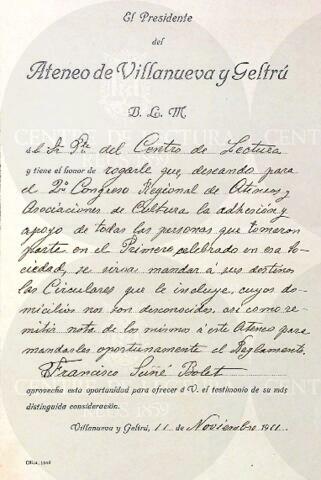 El Presidente
del
Ateneo de Villanueva y Geltrú
B. L. M.
al Sr. Pte. del Centro de Lectura
y tiene el honor de rogarle que, deseando para
el 2º Congreso Regional de Ateneos y
Asociaciones de Cultura la adhesión y
apoyo de todas las personas que tomaron
parte en el Primero, celebrado en esa So-
ciedad, se sirva mandar á sus destinos
las Circulares que le incluye, cuyos do-
micilios nos son desconocidos, así como re-
mitir nota de los mismos á este Ateneo para
mandarles oportunamente el Reglamento.
Francisco Suñé Bolet
aprovecha esta oportunidad para ofrecer á V. el testimonio de su más
distinguida consideración.
Villanueva y Geltrú, 11 de Noviembre 1911.
CENTRE DE LECTURA
1859